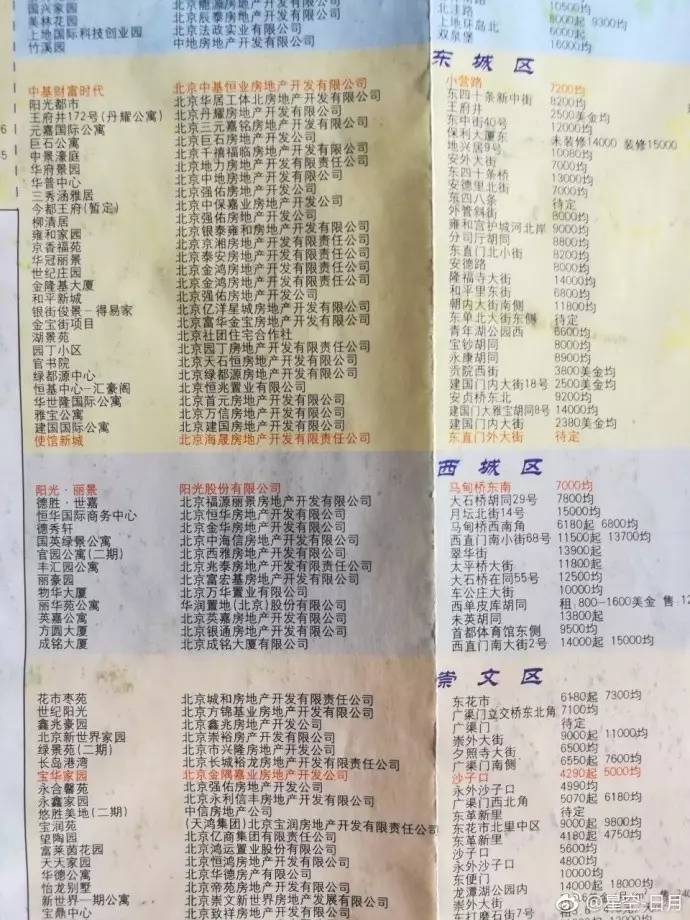 国兴家园 10500均
美林花园 北京辰泰房地产开发有限公司 北沣路 8000起 9300均
上地国际科技创业园 北京法政实业有限公司 上地环岛北 6000起
竹溪园 中地房地产开发有限公司 双泉堡 16000均
东城区
中基财富时代 北京中基恒业房地产开发有限公司 小营路 7200均
阳光都市 北京华居工体北房地产开发有限公司 东四十条新中街 8200均
王府井172号(丹耀公寓) 北京丹耀房地产开发有限公司 王府井 2500美金均
元嘉国际公寓 北京三元嘉铭房地产开发有限公司 东中街40号 12000均
巨石公寓 北京巨石房地产开发有限公司 保利大厦东 未装修14000 装修15000
中景濠庭 北京千禧福临房地产开发有限责任公司 地兴居9号 10080均
华府景园 北京地力房地产开发有限责任公司 安外大街 7000均
华普中心 北京中地房地产开发有限公司 东四十条桥 13000均
三秀涵雅居 北京强佑房地产开发公司 安德里北街 7000均
今都王府(暂定) 北京中保嘉业房地产开发有限公司 东四八条 待定
柳清居 北京强佑房地产开发公司 外管斜街 8000均
雍和家园 北京银泰雍和房地产开发有限公司 雍和宫护城河北岸 9000均
京香福苑 北京京湘房地产开发有限责任公司 分司厅胡同 8800均
华冠丽景 北京泰安房地产开发有限责任公司 东直门北小街 8200均
世纪庄园 北京金鸿房地产开发有限责任公司 安德路 8000均
金隆基大厦 北京金鸿房地产开发有限责任公司 隆福寺大街 14000均
和平新城 北京强佑房地产开发公司 和平里东街 6800均
银街俊景－得易家 北京亿洋星城房地产开发有限公司 朝内大街南侧 11800均
金宝街项目 北京富华金宝房地产开发有限公司 东单北大街东侧 待定
湖景苑 北京社团住宅合作社 青年湖公园西 6600均
园丁小区 北京园丁房地产开发有限责任公司 宝钞胡同 8000均
官书院 北京天石恒房地产开发有限公司 永康胡同 8900均
绿都源中心 北京绿都房地产开发有限公司 贡院西街 3800美金均
恒基中心－汇豪阁 北京恒兆置业有限公司 建国门内大街18号 2500美金均
华世隆国际公寓 北京首元房地产开发有限公司 安贞桥东北 9200均
雅宝公寓 北京万信房地产开发有限公司 建国门大雅宝胡同8号 14000均
建国国际公寓 北京国际房地产开发有限公司 建国门内大街 2380美金均
使馆新城 北京海晟房地产开发有限责任公司 东直门外大街 待定
西城区
阳光·丽景 阳光股份有限公司 马甸桥东南 7000均
德胜·世嘉 北京福源丽景房地产开发有限公司 大石桥胡同29号 7800均
恒华国际商务中心 北京恒华房地产开发有限公司 月坛北街14号 15000均
德秀轩 北京金华房地产开发有限公司 马甸桥西南角 6180起 6800均
国英绿景公寓 北京中海信房地产开发有限公司 西直门南小街68号 11500起 13700均
官园公寓(二期) 北京西雅房地产开发有限公司 翠华街 13900起
丰汇园公寓 北京兆泰房地产开发有限责任公司 太平桥大街 11800起
丽豪园 北京富宏基房地产开发有限公司 大石桥在同55号 12500均
物华大厦 北京万华置业有限公司 车公庄大街 10000均
丽华苑公寓 华润置地(北京)股份有限公司 西单皮库胡同 租:800-1600美金 售:12
英嘉公寓 北京英嘉房地产开发有限公司 未英胡同 13800起
方圆大厦 北京银通房地产开发有限公司 首都体育馆东侧 9500均
成铭大厦 北京成铭大厦有限公司 西直门南大街2号 14000起 15000均
崇文区
花市枣苑 北京城和房地产开发有限责任公司 东花市 6180起 7300均
世纪阳光 北京方锦基业房地产开发有限公司 广渠门立交桥东北角 7100均
鑫兆豪园 北京鑫兆房地产开发有限公司 广渠门 待定
北京新世界家园 北京崇裕房产开发有限公司 崇外大街 9000起 11000均
绿景苑(二期) 北京市兴隆房地产开发公司 夕照寺大街 6500均
长岛港湾 北京长城裕龙房地产开发有限公司 广渠门南侧 6550起 7600均
宝华家园 北京金隅嘉业房地产开发公司 沙子口 4290起 5000均
永合馨苑 北京强佑房地产开发公司 永外沙子口 4990均
永鑫家园 北京永利信丰房地产开发有限公司 广渠门西北角 5070起 6180均
悠胜美地(二期) 中信房地产公司 东革新里 待定
宝润苑 (天鸿集团)北京宝润房地产开发有限责任公司 东花市北里中区 9000起 9800均
望陶园 北京亿商集团有限责任公司 东革新里 4180起 4750均
富莱茵花园 北京鸿运置业股份有限公司 沙子口 5600均
天天家园 北京房地产开发有限公司 永外沙子口 4800均
华德公寓 北京华德房地产有限公司 东便门 10000均
怡龙别墅 北京帝苑房地产开发有限公司 龙潭湖公园内 14000起 18000均
新世界一期公寓 北京崇文新世界房地产发展有限公司 崇外大街
宝鼎中心 北京致祥房地产开发有限公司 东打磨石街7号
@星空_日月